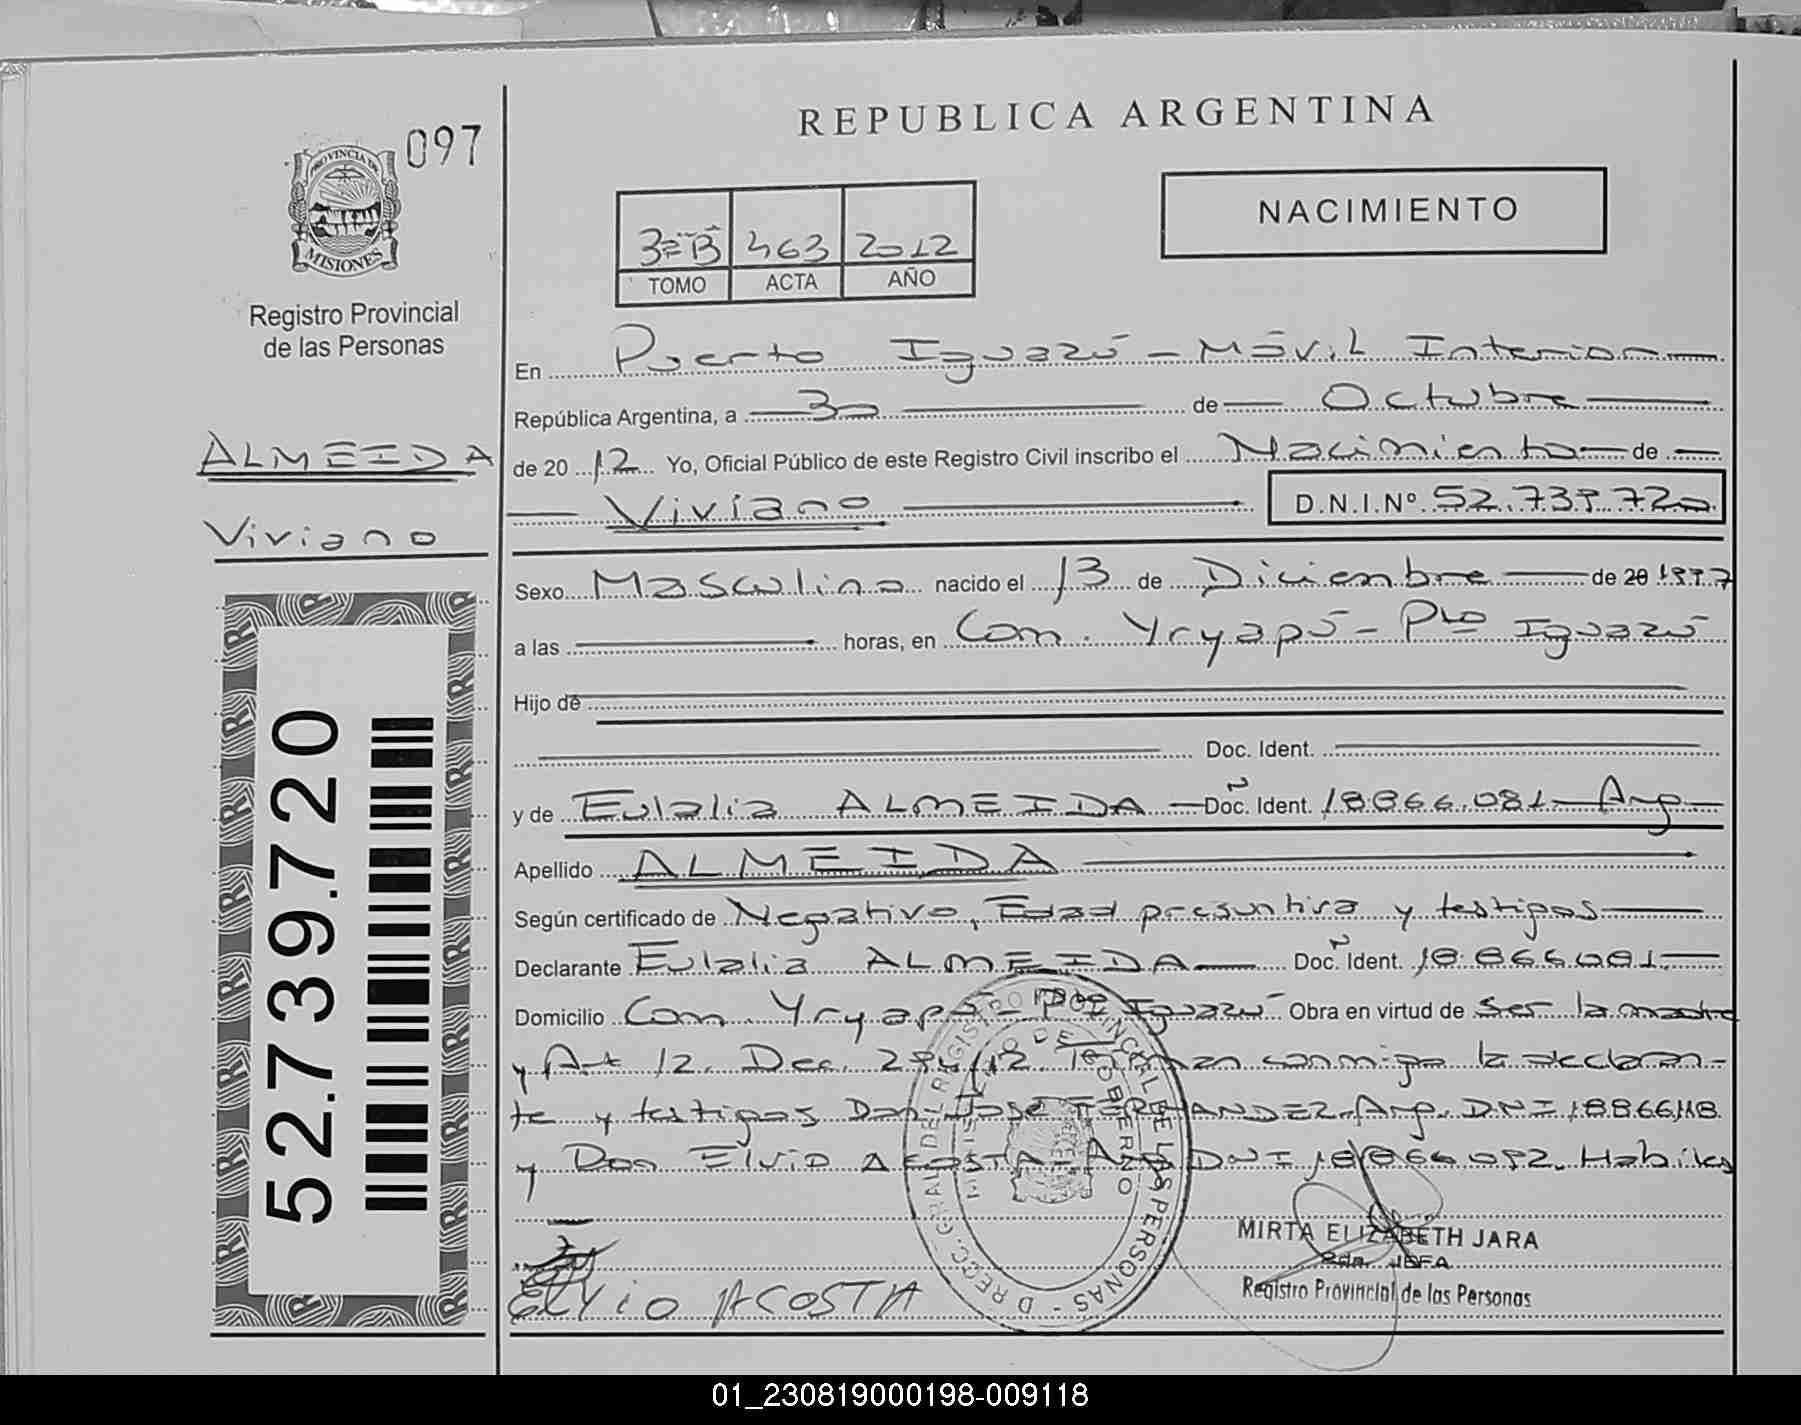 097
PROVINCIA DE
MISIONES
Registro Provincial
de las Personas
ALMEIDA
Viviano
52.739.720
REPUBLICA ARGENTINA
NACIMIENTO
3º"B" 463 2012
TOMO ACTA AÑO
En Puerto Iguazú - Móvil Interior
República Argentina, a 30 de Octubre
de 20 12 Yo, Oficial Público de este Registro Civil inscribo el Nacimiento de
Viviano D.N.I.Nº 52.739.720
Sexo Masculino nacido el 13 de Diciembre de 20 1997
a las horas, en Com. Yryapú - Pto Iguazú
Hijo de
Doc. Ident.
y de Eulalia ALMEIDA Doc. Ident. 18.866.081 Arg
Apellido ALMEIDA
Según certificado de Negativo, Edad presuntiva y testigos
Declarante Eulalia ALMEIDA Doc. Ident. 18.866.081
Domicilio Com. Yryapú - Pto Iguazú Obra en virtud de ser la madre
y Art 12. Dec. 294/12. Firman conmigo la declaran-
te y testigos Don José FERNANDEZ Arg. DNI 18866118
y Don Elvio ACOSTA - Arg DNI 18866092. Habiles
DRECC. GRAL DE REGISTRO PROVINCIAL DE LAS PERSONAS
MINISTERIO DE GOBIERNO
MIRTA ELIZABETH JARA
JEFA
Registro Provincial de las Personas
ELVIO ACOSTA
01_230819000198-009118